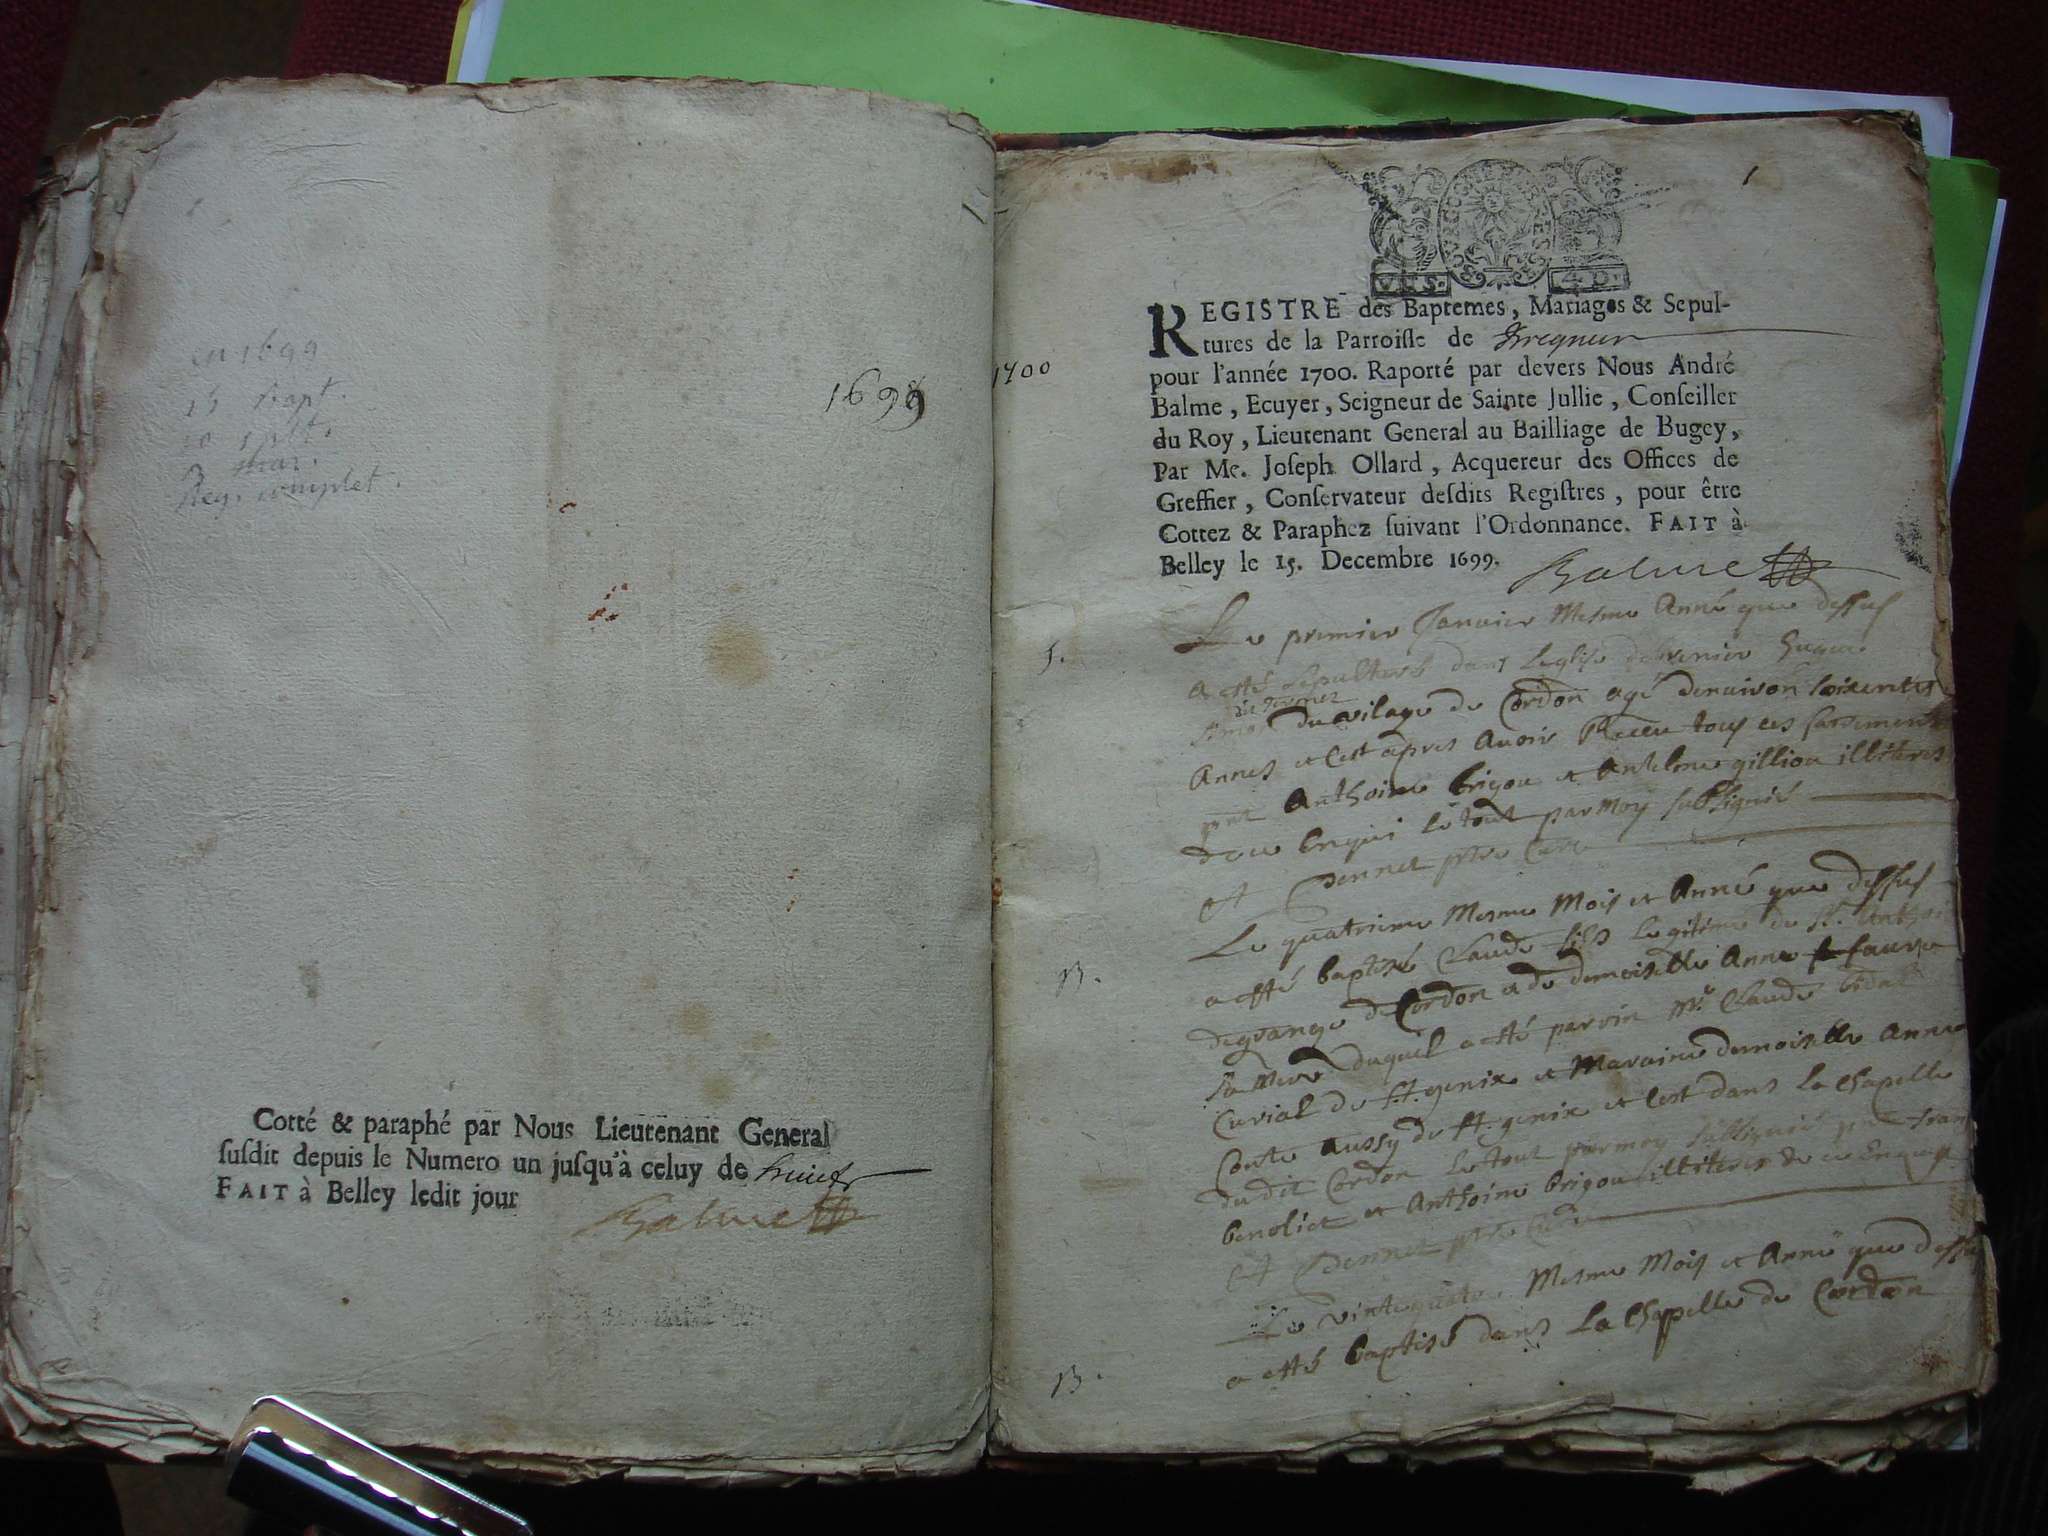 en 1699
15 bapt.
10 splt.
3 mar.
Reg. complet.
1699
Cotté & paraphé par Nous Lieutenant General
susdit depuis le Numero un jusqu'à celuy de huict
FAIT à Belley ledit jour
Balme
1
1700
REGISTRE des Baptemes, Mariages & Sepul-
tures de la Parroisse de
pour l'année 1700. Raporté par devers Nous André
Balme, Ecuyer, Seigneur de Sainte Jullie, Conseiller
du Roy, Lieutenant General au Bailliage de Bugey,
Par Me. Joseph Ollard, Acquereur des Offices de
Greffier, Conservateur desdits Registres, pour être
Cottez & Paraphez suivant l'Ordonnance. FAIT à
Belley le 15. Decembre 1699.
Balme
S.
Le premier Janvier Mesme Anné que dessus
a esté sepulturé dans leglise
du vilage de Cordon agé denviron soixente
Annes et cest apres avoir Receu tous ces sacrements
pnt Anthoine brigou et Anthelme gillion illiteres
de ce enquis le tout par moy subsigné
Pernet ptre Curé
B.
Le quatrieme Mesme Mois et Anné que dessus
a esté baptisé Claude fils legitime de Sr. Antho
degrange de Cordon et de demoiselle Anne faure
sa mere duquel a esté parrin Mr. Claude
Curial de St. genix et Maraine demoiselle Anne
Conte aussy de St. genix et cest dans la Chapelle
dudit Cordon le tout par moy subsigné pnt fran
benoliet et Anthoine brigou illiteres de ce Enquis
Pernet ptre Curé
B.
Le vintequatre Mesme Mois et Anné que dessu
a esté baptisé dans La Chapelle de Cordon